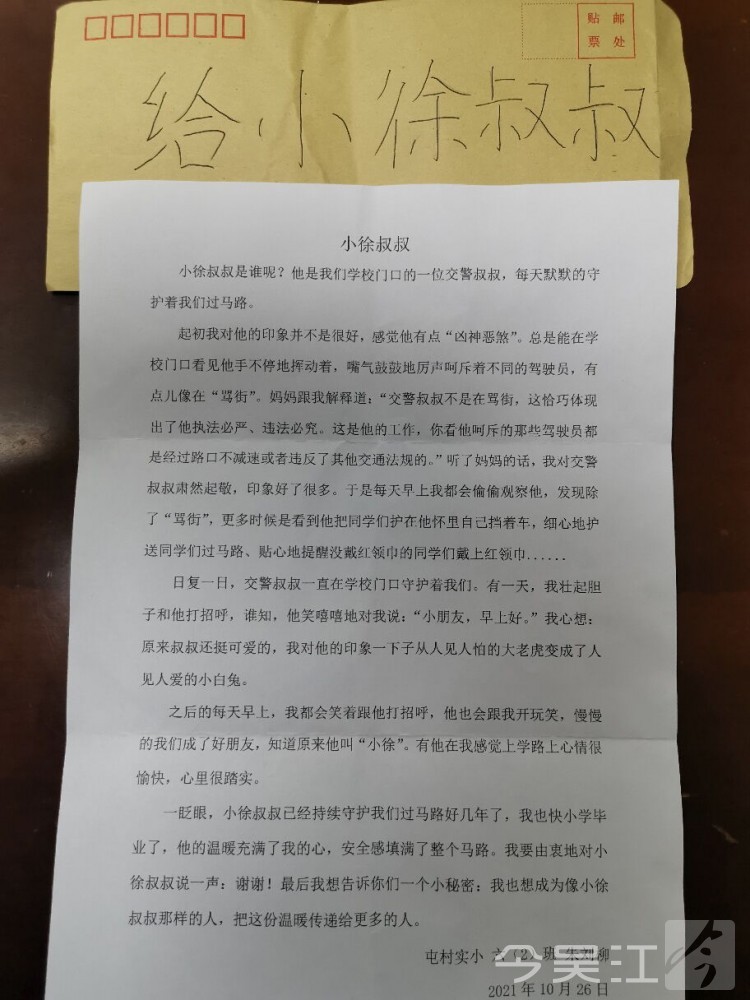 贴 邮
票 处
给小徐叔叔
小徐叔叔
小徐叔叔是谁呢？他是我们学校门口的一位交警叔叔，每天默默的守
护着我们过马路。
起初我对他的印象并不是很好，感觉他有点“凶神恶煞”。总是能在学
校门口看见他手不停地挥动着，嘴气鼓鼓地厉声呵斥着不同的驾驶员，有
点儿像在“骂街”。妈妈跟我解释道：“交警叔叔不是在骂街，这恰巧体现
出了他执法必严、违法必究。这是他的工作，你看他呵斥的那些驾驶员都
是经过路口不减速或者违反了其他交通法规的。”听了妈妈的话，我对交警
叔叔肃然起敬，印象好了很多。于是每天早上我都会偷偷观察他，发现除
了“骂街”，更多时候是看到他把同学们护在他怀里自己挡着车，细心地护
送同学们过马路、贴心地提醒没戴红领巾的同学们戴上红领巾......
日复一日，交警叔叔一直在学校门口守护着我们。有一天，我壮起胆
子和他打招呼，谁知，他笑嘻嘻地对我说：“小朋友，早上好。”我心想：
原来叔叔还挺可爱的，我对他的印象一下子从人见人怕的大老虎变成了人
见人爱的小白兔。
之后的每天早上，我都会笑着跟他打招呼，他也会跟我开玩笑，慢慢
的我们成了好朋友，知道原来他叫“小徐”。有他在我感觉上学路上心情很
愉快，心里很踏实。
一眨眼，小徐叔叔已经持续守护我们过马路好几年了，我也快小学毕
业了，他的温暖充满了我的心，安全感填满了整个马路。我要由衷地对小
徐叔叔说一声：谢谢！最后我想告诉你们一个小秘密：我也想成为像小徐
叔叔那样的人，把这份温暖传递给更多的人。
屯村实小 六（2）班 朱刘柳
2021 年 10 月 26 日
今吴江 今